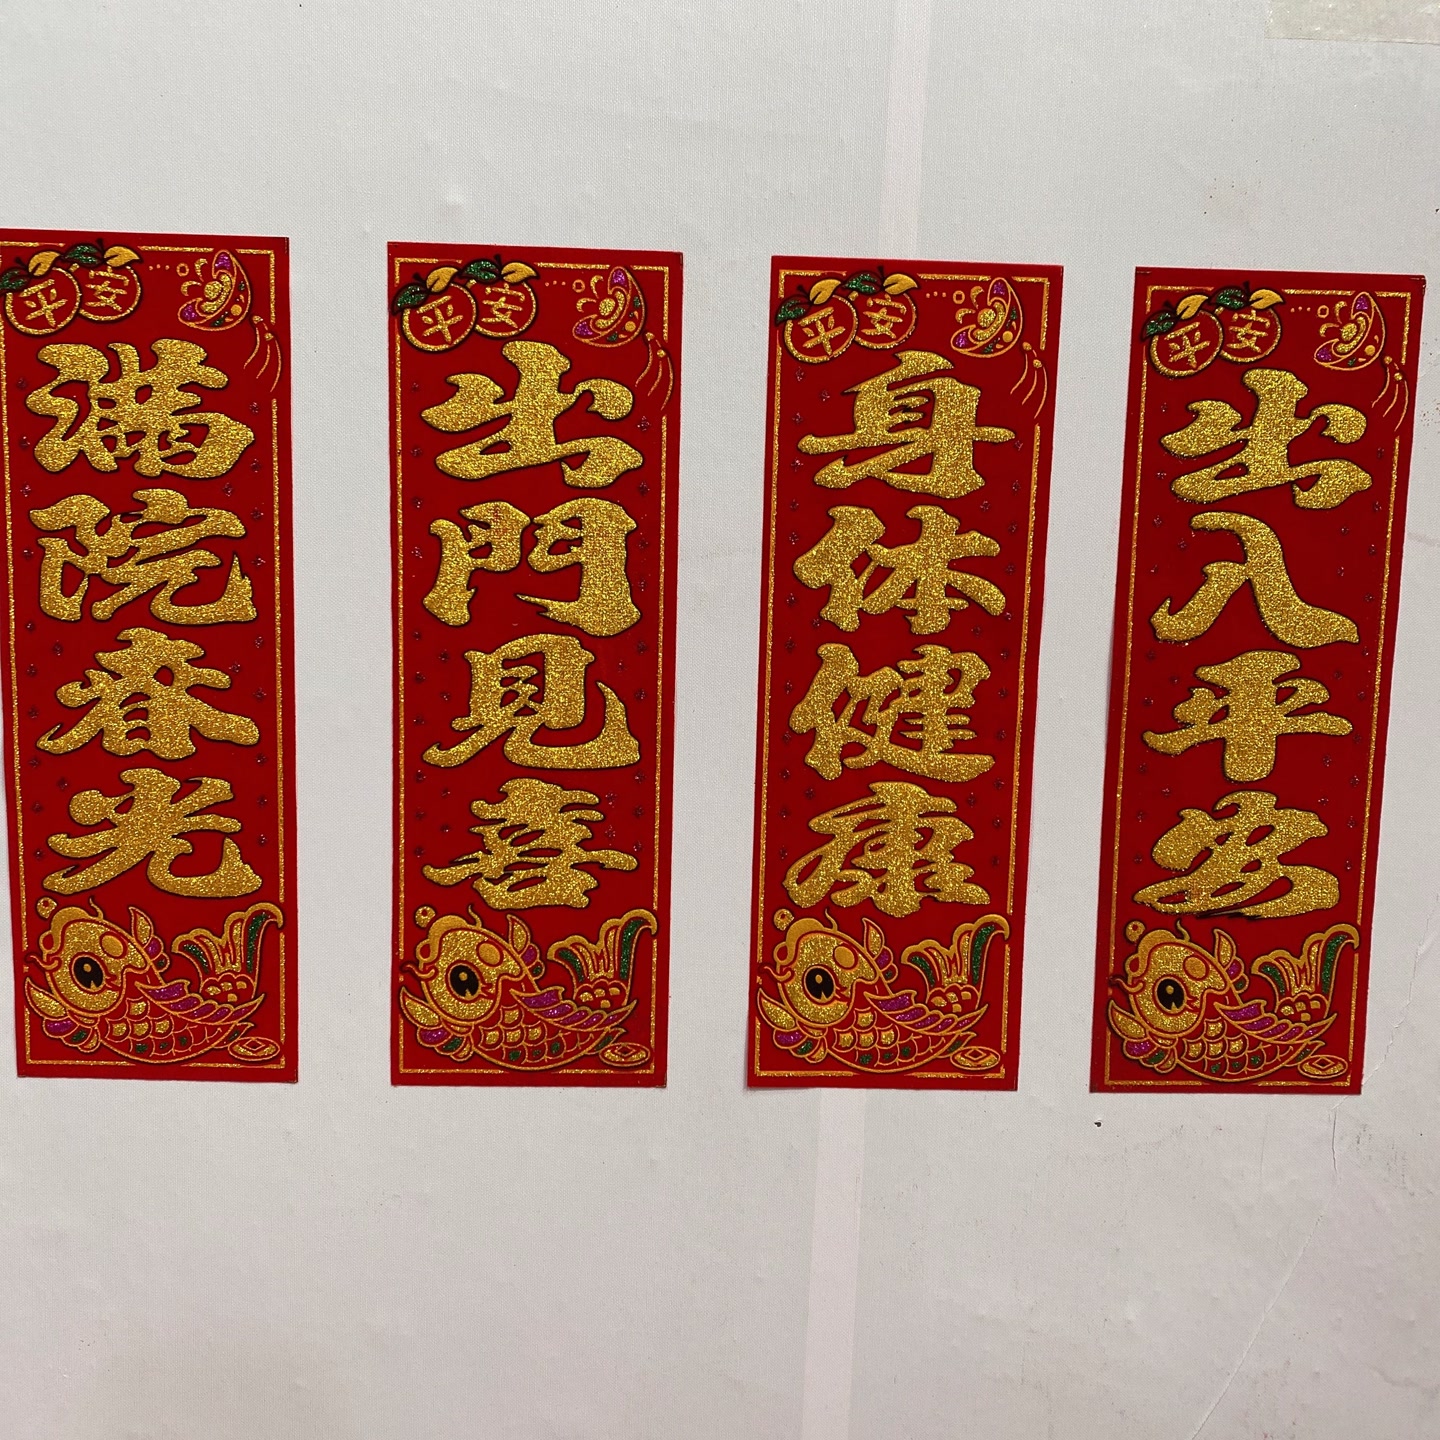 平安
滿院春光
平安
出門見喜
平安
身体健康
平安
出入平安